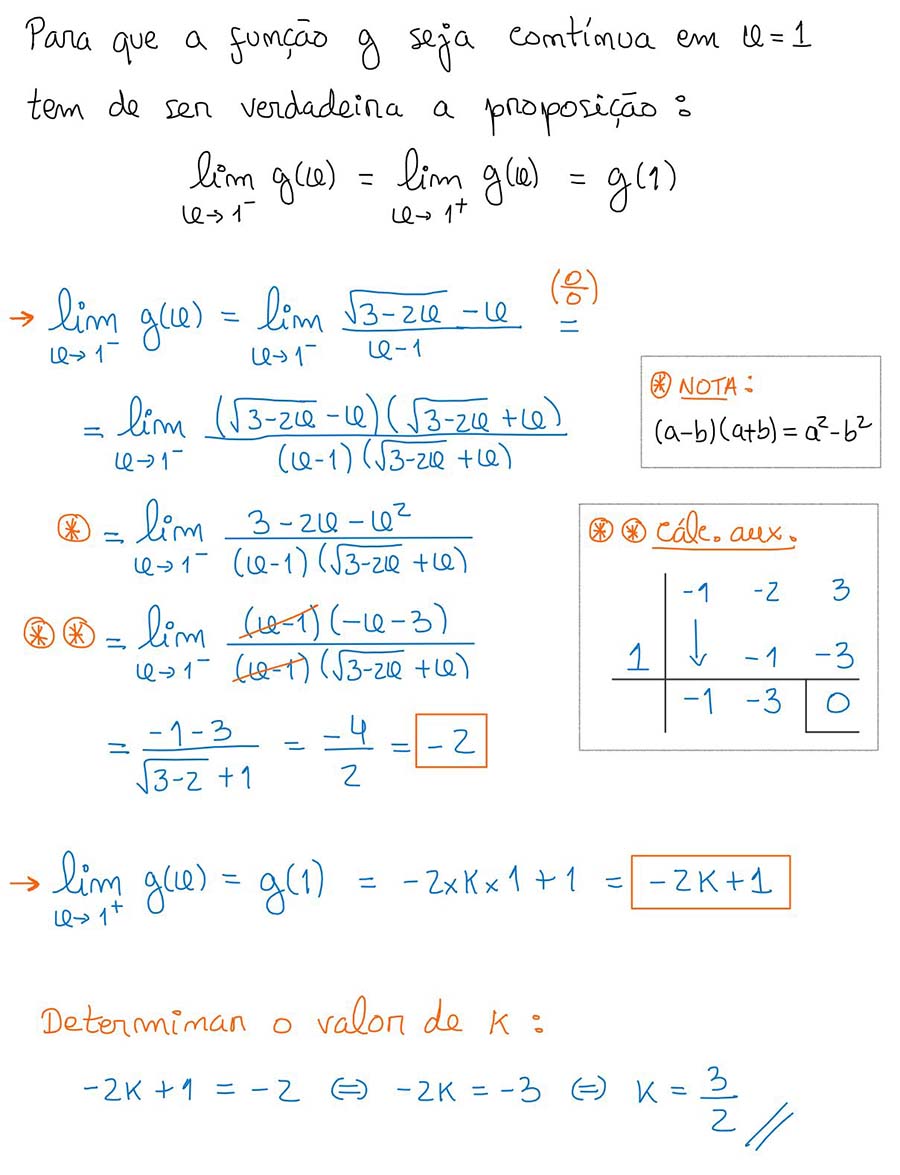 Para que a função g seja contínua em x = 1
tem de ser verdadeira a proposição :
lim x→1⁻ g(x) = lim x→1⁺ g(x) = g(1)
→ lim x→1⁻ g(x) = lim x→1⁻ (√(3-2x) - x)/(x-1) = (0/0)
= lim x→1⁻ ((√(3-2x) - x)(√(3-2x) + x))/((x-1)(√(3-2x) + x))
⊛ = lim x→1⁻ (3-2x-x²)/((x-1)(√(3-2x) + x))
⊛ ⊛ = lim x→1⁻ ((x-1)(-x-3))/((x-1)(√(3-2x) + x))
= (-1-3)/(√(3-2) + 1) = -4/2 = -2
⊛ NOTA :
(a-b)(a+b) = a²-b²
⊛ ⊛ Cálc. aux.
-1 -2 3
1 ↓ -1 -3
-1 -3 0
→ lim x→1⁺ g(x) = g(1) = -2×K×1+1 = -2K+1
Determinar o valor de K :
-2K+1 = -2 ⇔ -2K = -3 ⇔ K = 3/2 //